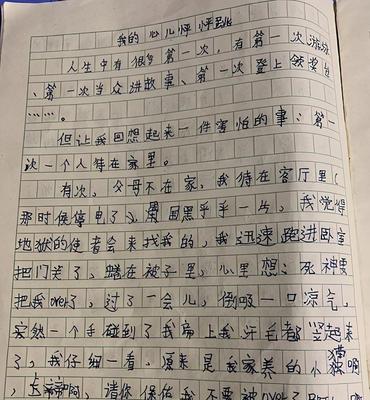 我的心儿怦怦跳
人生中有很多第一次，有第一次游泳
、第一次当众讲故事、第一次登上领奖台
……。
但让我回想起来一件害怕的事：第一
次一个人待在家里。
有次，父母不在家，我待在客厅里（
那时候停电了），周围黑乎乎一片，我觉得
地狱的使者会来找我的，我迅速跑进卧室
把门关了，蟠在被子里，心里想：死神要
把我over了，过了一会儿，倒吸一口凉气，
突然一个手碰到了我肩上我汗毛都竖起来
了，我仔细一看，原来是我家养的小猫啊
，请你保佑我不要被over了